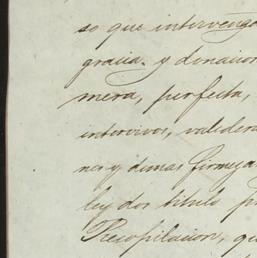 so que intervenga
gracia y donacion
mera, perfecta,
intervivos, valedera
nes y demas firmeza
ley dos titulo
Recopilacion, que